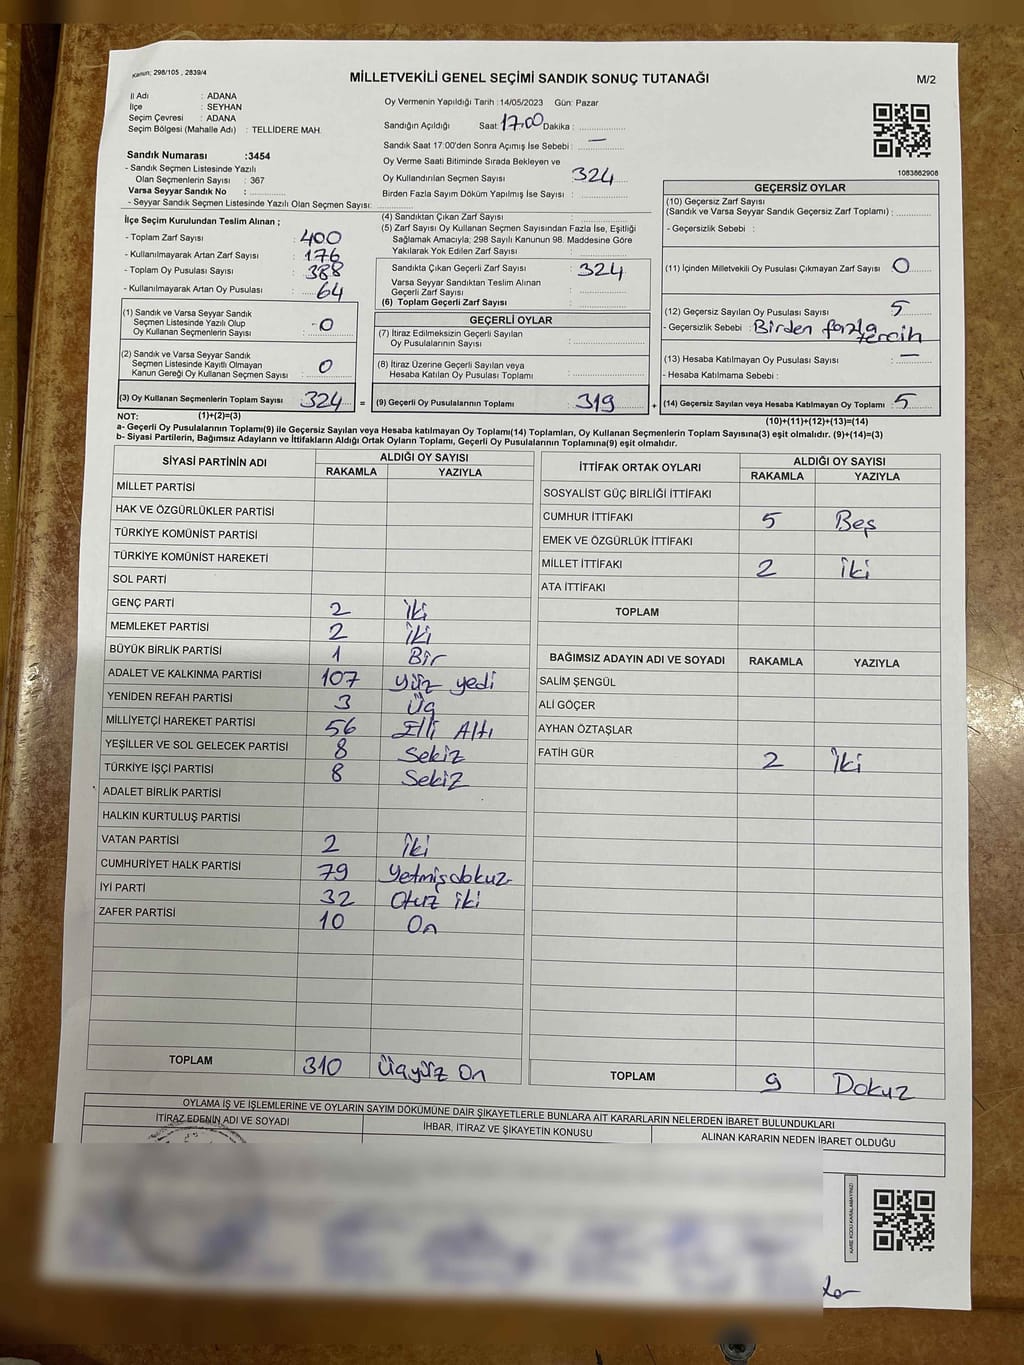 Kanun; 298/105 , 2839/4
MİLLETVEKİLİ GENEL SEÇİMİ SANDIK SONUÇ TUTANAĞI
M/2
İl Adı : ADANA
İlçe : SEYHAN
Seçim Çevresi : ADANA
Seçim Bölgesi (Mahalle Adı) : TELLİDERE MAH.
Sandık Numarası :3454
- Sandık Seçmen Listesinde Yazılı
Olan Seçmenlerin Sayısı : 367
Varsa Seyyar Sandık No :
- Seyyar Sandık Seçmen Listesinde Yazılı Olan Seçmen Sayısı:
Oy Vermenin Yapıldığı Tarih :14/05/2023 Gün: Pazar
Sandığın Açıldığı Saat: 17.00 Dakika :
Sandık Saat 17:00'den Sonra Açımış İse Sebebi : —
Oy Verme Saati Bitiminde Sırada Bekleyen ve
Oy Kullandırılan Seçmen Sayısı : 324
Birden Fazla Sayım Döküm Yapılmış İse Sayısı :
1083862908
İlçe Seçim Kurulundan Teslim Alınan ;
- Toplam Zarf Sayısı : 400
- Kullanılmayarak Artan Zarf Sayısı : 176
- Toplam Oy Pusulası Sayısı : 388
- Kullanılmayarak Artan Oy Pusulası : 64
(1) Sandık ve Varsa Seyyar Sandık
Seçmen Listesinde Yazılı Olup
Oy Kullanan Seçmenlerin Sayısı : 0
(2) Sandık ve Varsa Seyyar Sandık
Seçmen Listesinde Kayıtlı Olmayan
Kanun Gereği Oy Kullanan Seçmen Sayısı : 0
(3) Oy Kullanan Seçmenlerin Toplam Sayısı 324 =
(4) Sandıktan Çıkan Zarf Sayısı :
(5) Zarf Sayısı Oy Kullanan Seçmen Sayısından Fazla İse, Eşitliği
Sağlamak Amacıyla; 298 Sayılı Kanunun 98. Maddesine Göre
Yakılarak Yok Edilen Zarf Sayısı :
Sandıkta Çıkan Geçerli Zarf Sayısı : 324
Varsa Seyyar Sandıktan Teslim Alınan
Geçerli Zarf Sayısı :
(6) Toplam Geçerli Zarf Sayısı :
GEÇERLİ OYLAR
(7) İtiraz Edilmeksizin Geçerli Sayılan
Oy Pusulalarının Sayısı :
(8) İtiraz Üzerine Geçerli Sayılan veya
Hesaba Katılan Oy Pusulası Toplamı :
(9) Geçerli Oy Pusulalarının Toplamı : 319 +
GEÇERSİZ OYLAR
(10) Geçersiz Zarf Sayısı
(Sandık ve Varsa Seyyar Sandık Geçersiz Zarf Toplamı) :
- Geçersizlik Sebebi :
(11) İçinden Milletvekili Oy Pusulası Çıkmayan Zarf Sayısı : 0
(12) Geçersiz Sayılan Oy Pusulası Sayısı : 5
- Geçersizlik Sebebi : Birden fazla
tercih
(13) Hesaba Katılmayan Oy Pusulası Sayısı : —
- Hesaba Katılmama Sebebi :
(14) Geçersiz Sayılan veya Hesaba Katılmayan Oy Toplamı : 5
NOT: (1)+(2)=(3)
(10)+(11)+(12)+(13)=(14)
a- Geçerli Oy Pusulalarının Toplamı(9) ile Geçersiz Sayılan veya Hesaba katılmayan Oy Toplamı(14) Toplamları, Oy Kullanan Seçmenlerin Toplam Sayısına(3) eşit olmalıdır. (9)+(14)=(3)
b- Siyasi Partilerin, Bağımsız Adayların ve İttifakların Aldığı Ortak Oyların Toplamı, Geçerli Oy Pusulalarının Toplamına(9) eşit olmalıdır.
SİYASİ PARTİNİN ADI ALDIĞI OY SAYISI
RAKAMLA YAZIYLA
MİLLET PARTİSİ
HAK VE ÖZGÜRLÜKLER PARTİSİ
TÜRKİYE KOMÜNİST PARTİSİ
TÜRKİYE KOMÜNİST HAREKETİ
SOL PARTİ
GENÇ PARTİ 2 İki
MEMLEKET PARTİSİ 2 İki
BÜYÜK BİRLİK PARTİSİ 1 Bir
ADALET VE KALKINMA PARTİSİ 107 yüz yedi
YENİDEN REFAH PARTİSİ 3 Üç
MİLLİYETÇİ HAREKET PARTİSİ 56 Elli Altı
YEŞİLLER VE SOL GELECEK PARTİSİ 8 Sekiz
TÜRKİYE İŞÇİ PARTİSİ 8 Sekiz
ADALET BİRLİK PARTİSİ
HALKIN KURTULUŞ PARTİSİ
VATAN PARTİSİ 2 İki
CUMHURİYET HALK PARTİSİ 79 Yetmişdokuz
İYİ PARTİ 32 Otuz iki
ZAFER PARTİSİ 10 On
TOPLAM 310 Üçyüz On
İTTİFAK ORTAK OYLARI ALDIĞI OY SAYISI
RAKAMLA YAZIYLA
SOSYALİST GÜÇ BİRLİĞİ İTTİFAKI
CUMHUR İTTİFAKI 5 Beş
EMEK VE ÖZGÜRLÜK İTTİFAKI
MİLLET İTTİFAKI 2 İki
ATA İTTİFAKI
TOPLAM
BAĞIMSIZ ADAYIN ADI VE SOYADI RAKAMLA YAZIYLA
SALİM ŞENGÜL
ALİ GÖÇER
AYHAN ÖZTAŞLAR
FATİH GÜR 2 İki
TOPLAM 9 Dokuz
OYLAMA İŞ VE İŞLEMLERİNE VE OYLARIN SAYIM DÖKÜMÜNE DAİR ŞİKAYETLERLE BUNLARA AİT KARARLARIN NELERDEN İBARET BULUNDUKLARI
İTİRAZ EDENİN ADI VE SOYADI İHBAR, İTİRAZ VE ŞİKAYETİN KONUSU ALINAN KARARIN NEDEN İBARET OLDUĞU
KARE KODU KARALAMAYINIZ!